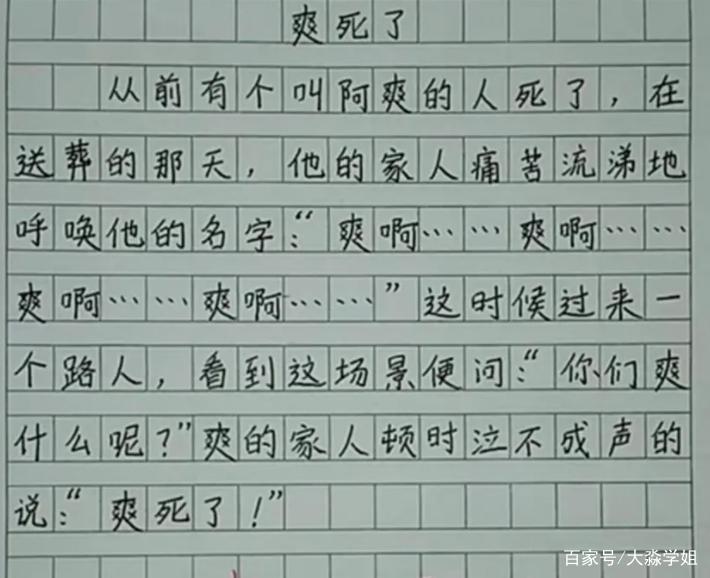 爽死了
从前有个叫阿爽的人死了，在
送葬的那天，他的家人痛苦流涕地
呼唤他的名字：“爽啊……爽啊……
爽啊……爽啊……”这时候过来一
个路人，看到这场景便问：“你们爽
什么呢？”爽的家人顿时泣不成声的
说：“爽死了！”
百家号/大淼学姐